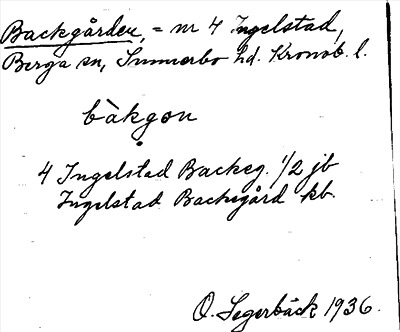 Backgården, = nr 4 Ingelstad,
Berga sn, Sunnerbo hd. Kronob. l.
bàkgɷn
4 Ingelstad Backeg. 1/2 jb
Ingelstad Backegård kb.
O. Segerbäck 1936.